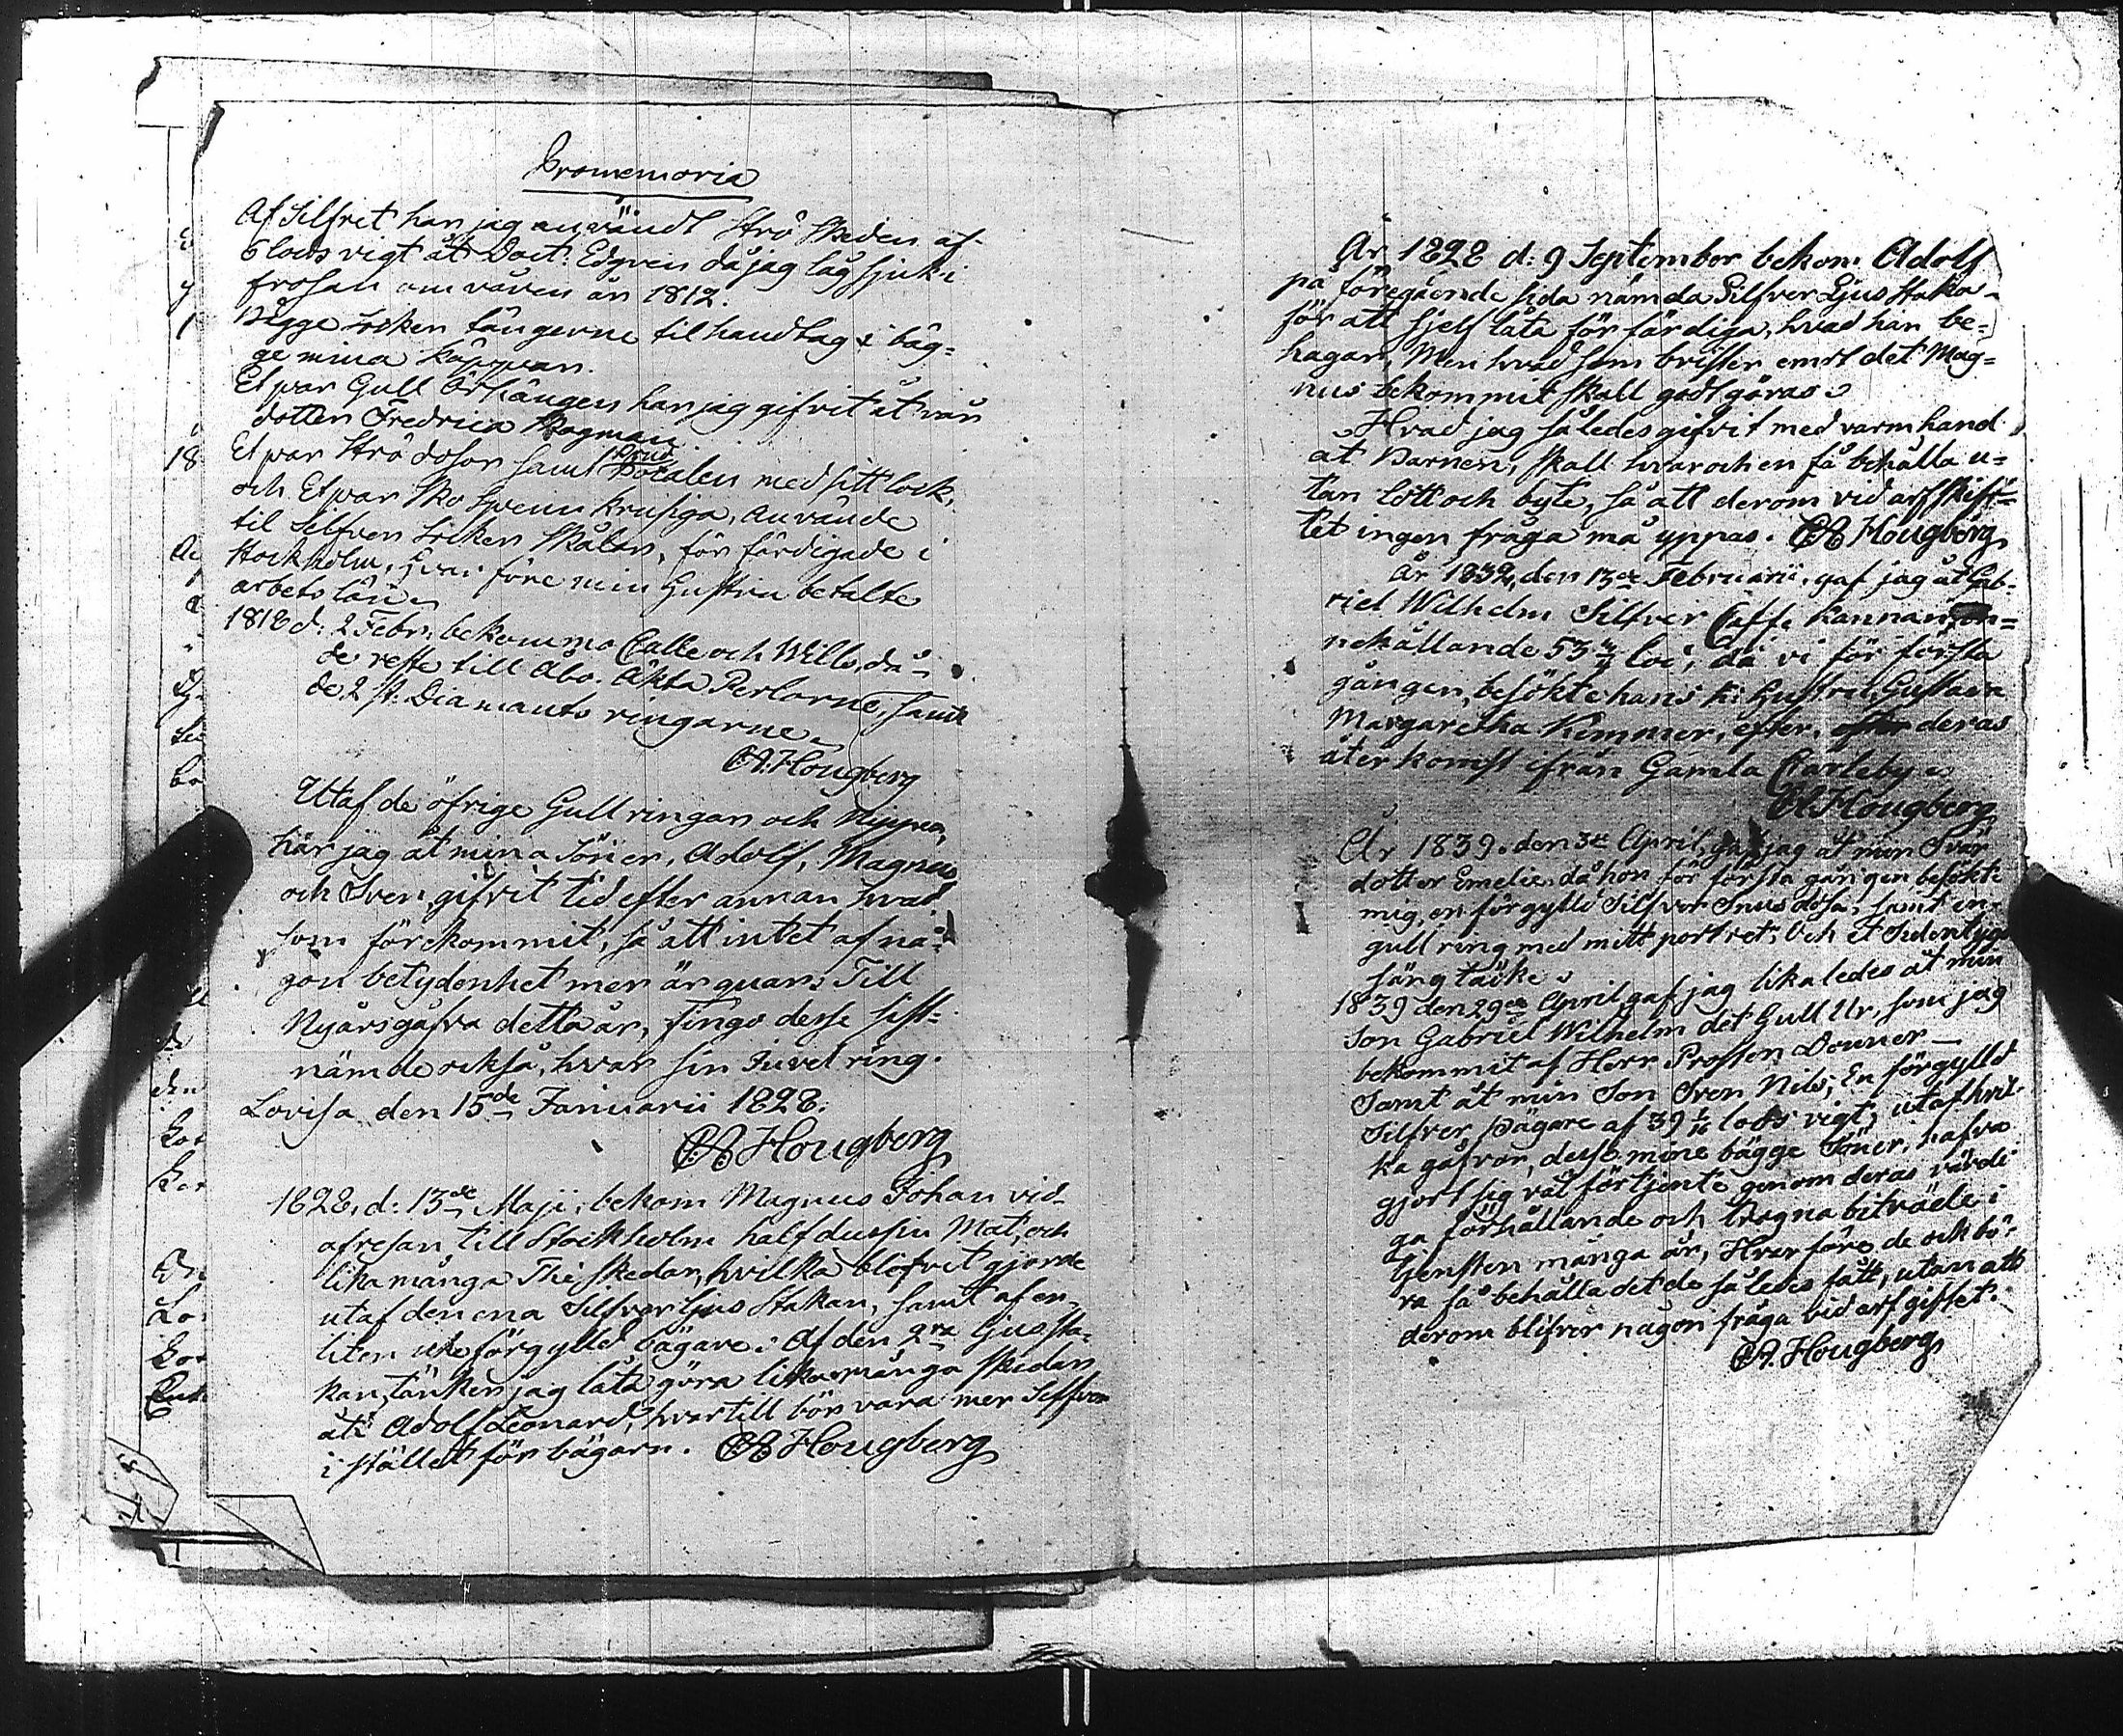 Promemoria
Af Silfret har jag användt Strö Skeden af
6 lods vigt åt Doct: Edgren då jag låg sjuk i
frosan om våren år 1812.
Bägge Socker tängerne til handtag i båg=
ge mina käppar.
Et par Gull Örhängen har jag gifvit åt vår
dotter Fredrica Hagman
Et par Strö dosor samt Pocalen med sitt lock,
och Et par Sko Spenn krusiga, använde
til Silfver Socker Skålen, för färdigade i
Stockholm, före min Hustru betalte
arbets lön
1818 d: 2 Febr. bekommo Calle och Wille, då
de reste till Åbo. Äkta Perlorne, samt
de 2 st. Diamants ringarne
CA Hougberg
Utaf de öfrige Gullringar och
har jag åt mina Söner, Adolf, Magnus
och Sven gifvit tid efter annan hvad
som förekommit, så att intet af nå-
gon betydenhet mer är qvar. Till
Nyårsgåfva detta år, fingo desse sist-
nämde också, hvar sin Juvel ring.
Lovisa den 15de Januarii 1828.
CA Hougberg
1828, d: 13de Maji, bekom Magnus Johan vid
afresan till Stockholm half dussin Mat, och
lika många The skedar, hvilka blefvit gjorde
utaf den ena Silfver ljus Stakan, samt af en
liten förgylld bägare: Af den 2ra ljussta-
kan, tänker jag låta göra lika många skedar
åt Adolf Leonard, hvartill bör vara mer Silfver
i stället för bägarn. CA Hougberg
År 1828 d: 9 September bekom Adolf
på föregående sida nämda Silfver Ljus Staka
för att sjelf låta för färdiga, hvad han be=
hagar, Men hvad som brister emot det Mag=
nus bekommit skall godtgöras
Hvad jag således gifvit med varm hand
åt Barnen, skall hvar och en få behålla u=
tan lott och byte, så att derom vid arfskif=
tet ingen fråga må yppas. CA Hougberg
År 1832, den 13de Februarii, gaf jag åt Gab-
riel Wilhelm Silfver Caffe kannan, in=
nehållande 53 lod, då vi för första
gången, besökte hans k: Hustru Gustava
Margaretha Kemmer, efter deras
återkomst ifrån Gamla Carleby
CA Hougberg
År 1839. den 3de April, gaf jag åt min Svär
dotter Emelie, då hon för första gången besökte
mig, en förgylld Silfver Snusdosa, samt en
gull ring med mitt portret, Och et Sidentygs
säng täcke
1839 den 29de April gaf jag likaledes åt min
Son Gabriel Wilhelm det Gull Ur, som jag
bekommit af Herr Prosten Donner
Samt åt min Son Sven Nils, En förgylld
Silfver Bägare af 39 1/16 lods vigt, utaf hvil-
ka gåfvor, desse mine bägge Söner, hafva
gjort sig väl förtjente genom deras värdi-
ga förhållande och trogna biträde i
tjensten många år, Hvarföre de ock bö-
ra få behålla det de således fått, utan att
derom blifver någon fråga vid arfgiftet.
CA. Hougberg
18
den